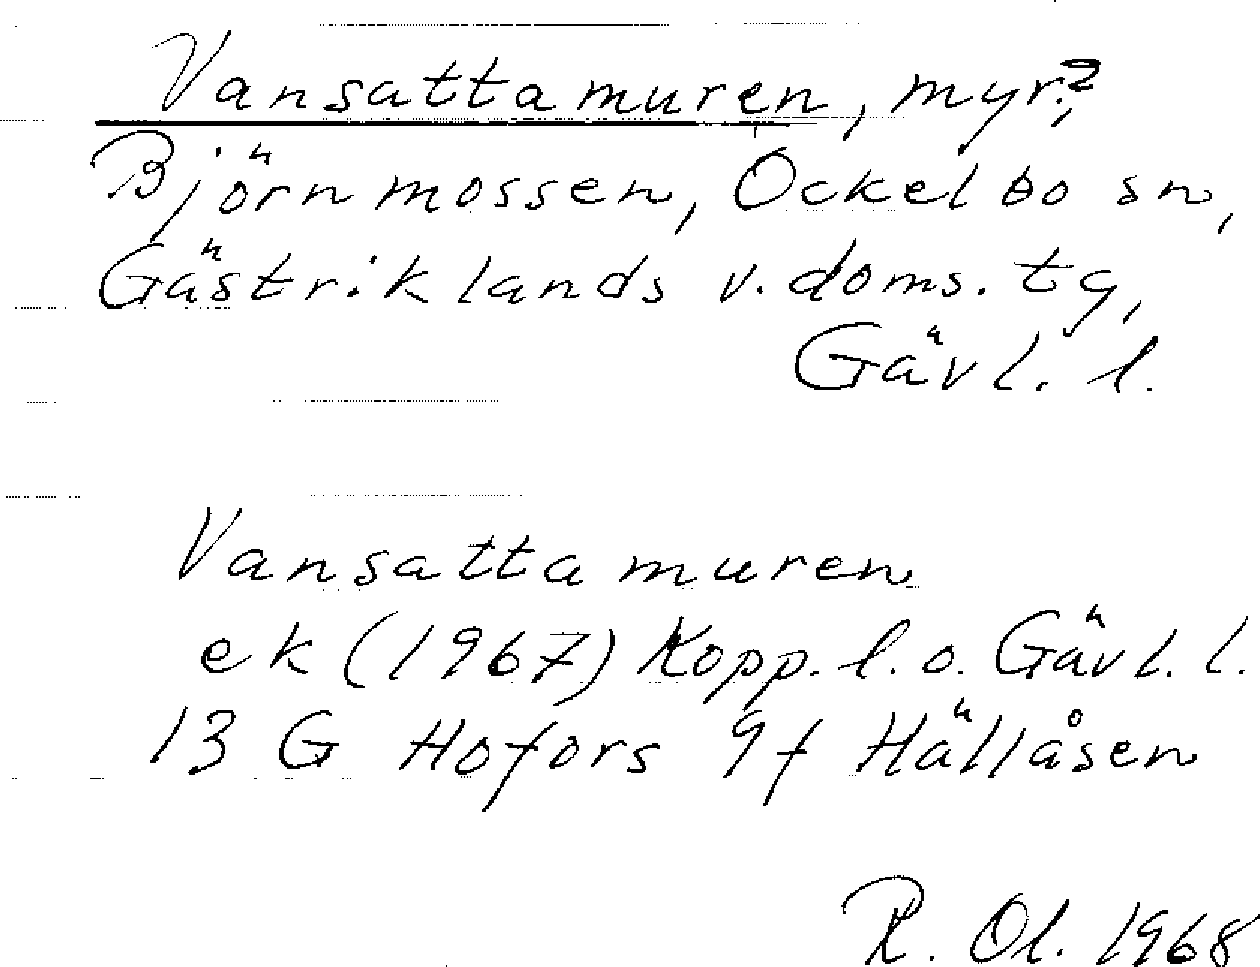 Vansattamuren, myr?,
Björnmossen, Ockelbo sn,
Gästriklands v. doms. tg,
Gävl. l.
Vansattamuren
ek (1967) Kopp. l. o. Gävl. l.
13 G Hofors 9f Hällåsen
R. Ol. 1968